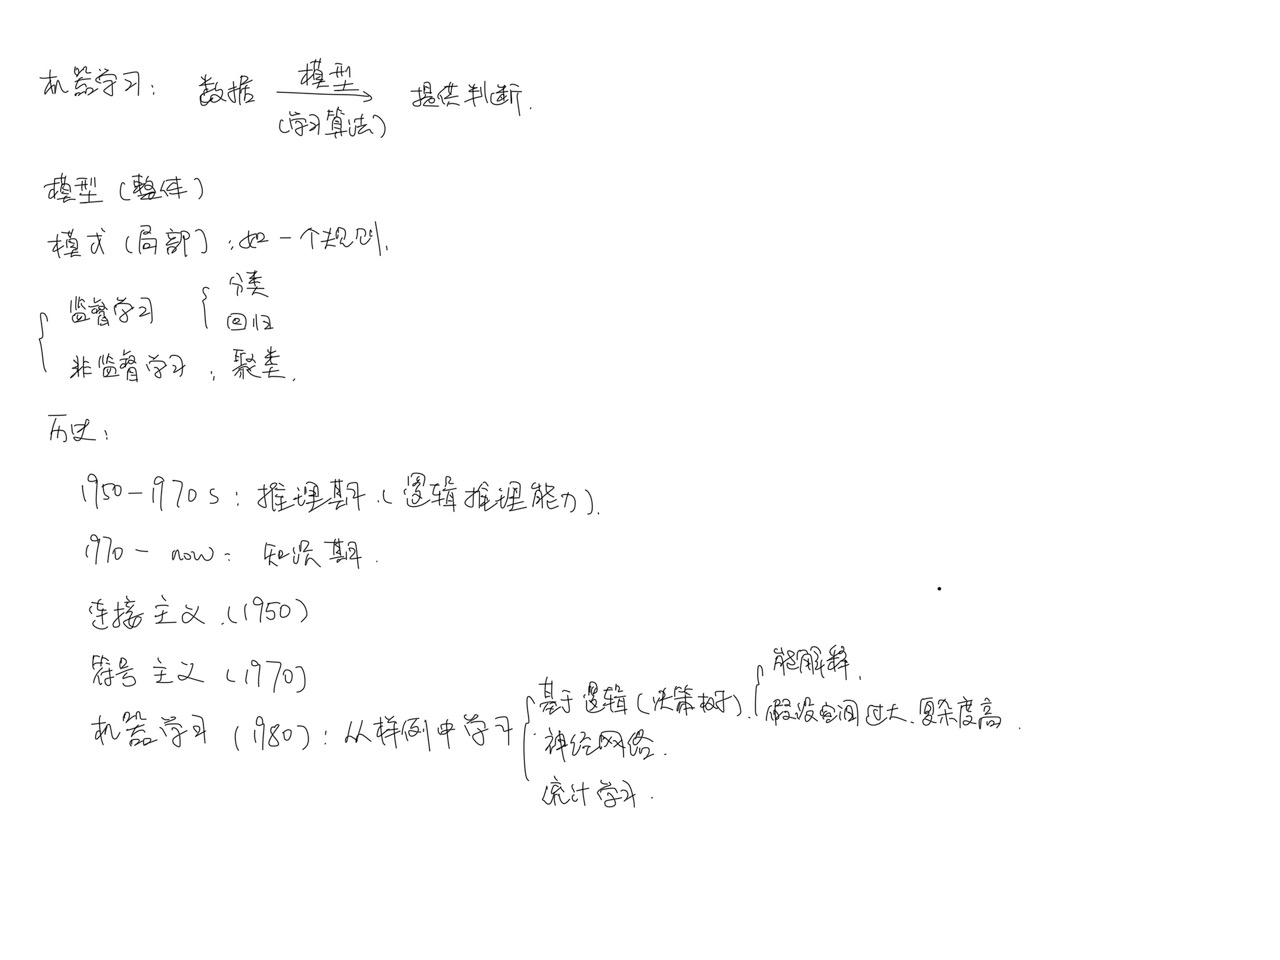 机器学习: 数据 模型 (学习算法) 提供判断.
模型 (整体)
模式 (局部): 如一个规则.
监督学习 { 分类
回归
非监督学习: 聚类.
历史:
1950-1970s: 推理期. (逻辑推理能力).
1970 - now: 知识期.
连接主义. (1950)
符号主义 (1970)
机器学习 (1980): 从样例中学习
基于逻辑 (决策树).
能解释.
假设空间过大、复杂度高.
神经网络.
统计学习.